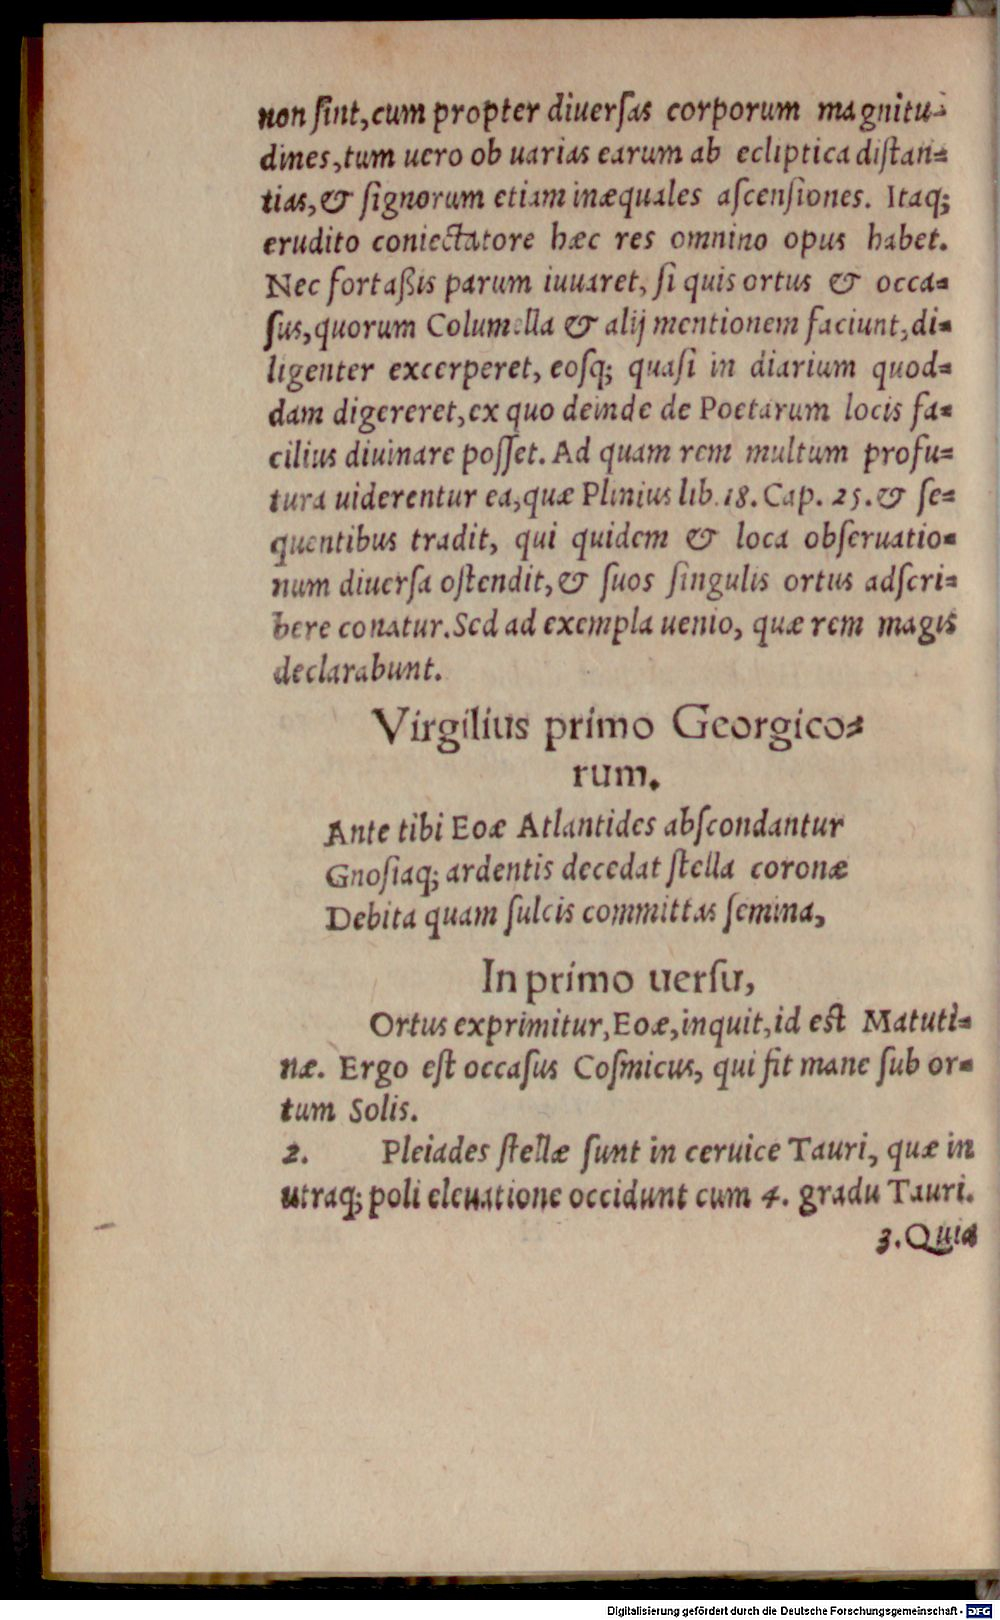 non ſint, cum propter diuerſas corporum magnitu-
dines, tum uero ob uarias earum ab ecliptica diſtan-
tias, & ſignorum etiam inæquales aſcenſiones. Itaq;
erudito coniectatore hæc res omnino opus habet.
Nec fortaßis parum iuuaret, ſi quis ortus & occa-
ſus, quorum Columella & alij mentionem faciunt, di-
ligenter excerperet, eosq; quaſi in diarium quod-
dam digereret, ex quo deinde de Poetarum locis fa-
cilius diuinare poſſet. Ad quam rem multum profu-
tura uiderentur ea, quæ Plinius lib. 18. Cap. 25. & ſe-
quentibus tradit, qui quidem & loca obſeruatio-
num diuerſa oſtendit, & ſuos ſingulis ortus adſcri-
bere conatur. Sed ad exempla uenio, quæ rem magis
declarabunt.
Virgilius primo Georgico-
rum.
Ante tibi Eoæ Atlantides abſcondantur
Gnoſiaq; ardentis decedat ſtella coronæ
Debita quam ſulcis committas ſemina,
In primo uerſu,
Ortus exprimitur, Eoæ, inquit, id eſt Matuti-
næ. Ergo eſt occaſus Coſmicus, qui fit mane ſub or-
tum Solis.
2. Pleiades ſtellæ ſunt in ceruice Tauri, quæ in
utraq; poli eleuatione occidunt cum 4. gradu Tauri.
3. Quia
Digitalisierung gefördert durch die Deutsche Forschungsgemeinschaft - DFG